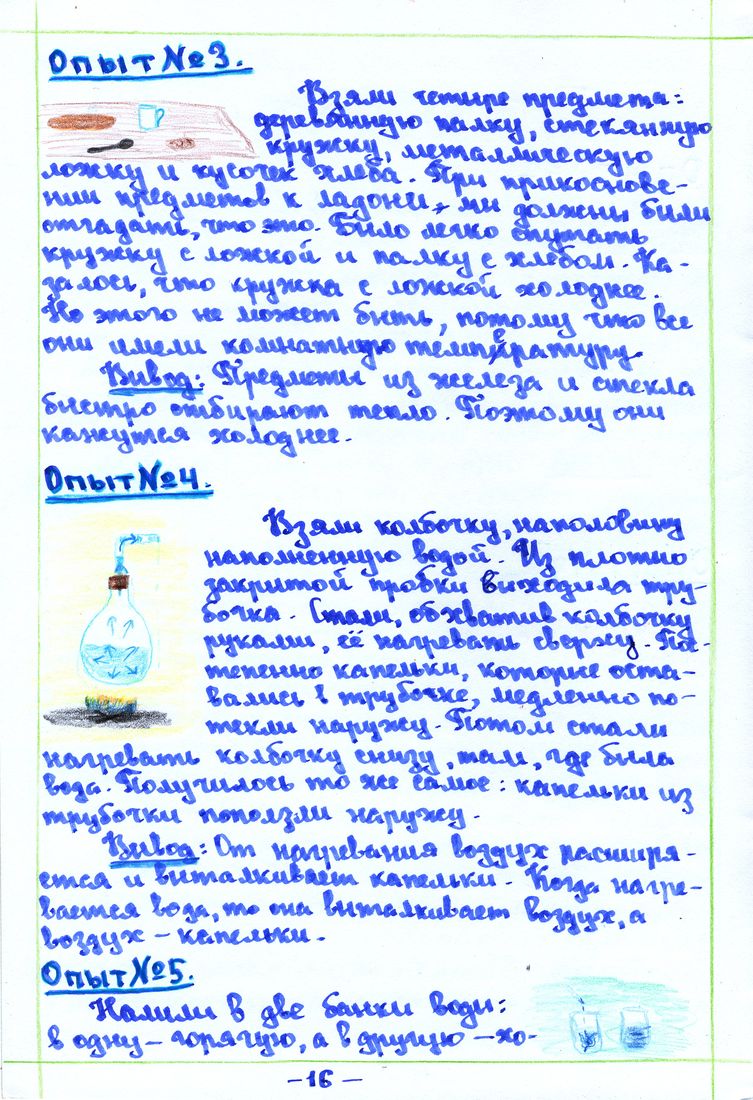 Опыт №3.
Взяли четыре предмета:
деревянную палку, стеклянную
кружку, металлическую
ложку и кусочек хлеба. При прикоснове-
нии предметов к ладони, мы должны были
отгадать, что это. Было легко спутать
кружку с ложкой и палку с хлебом. Ка-
залось, что кружка с ложкой холоднее.
Но этого не может быть, потому что все
они имели комнатную температуру.
Вывод: Предметы из железа и стекла
быстро отбирают тепло. Поэтому они
кажутся холоднее.
Опыт №4.
Взяли колбочку, наполовину
наполненную водой. Из плотно
закрытой пробки выходила тру-
бочка. Стали, обхватив колбочку
руками, её нагревать сверху. По-
степенно капельки, которые оста-
вались в трубочке, медленно по-
текли наружу. Потом стали
нагревать колбочку снизу, там, где была
вода. Получилось то же самое: капельки из
трубочки поползли наружу.
Вывод: От нагревания воздух расширя-
ется и выталкивает капельки. Когда нагре-
вается вода, то она выталкивает воздух, а
воздух – капельки.
Опыт №5.
Налили в две банки воды:
в одну – горячую, а в другую – хо-
– 16 –